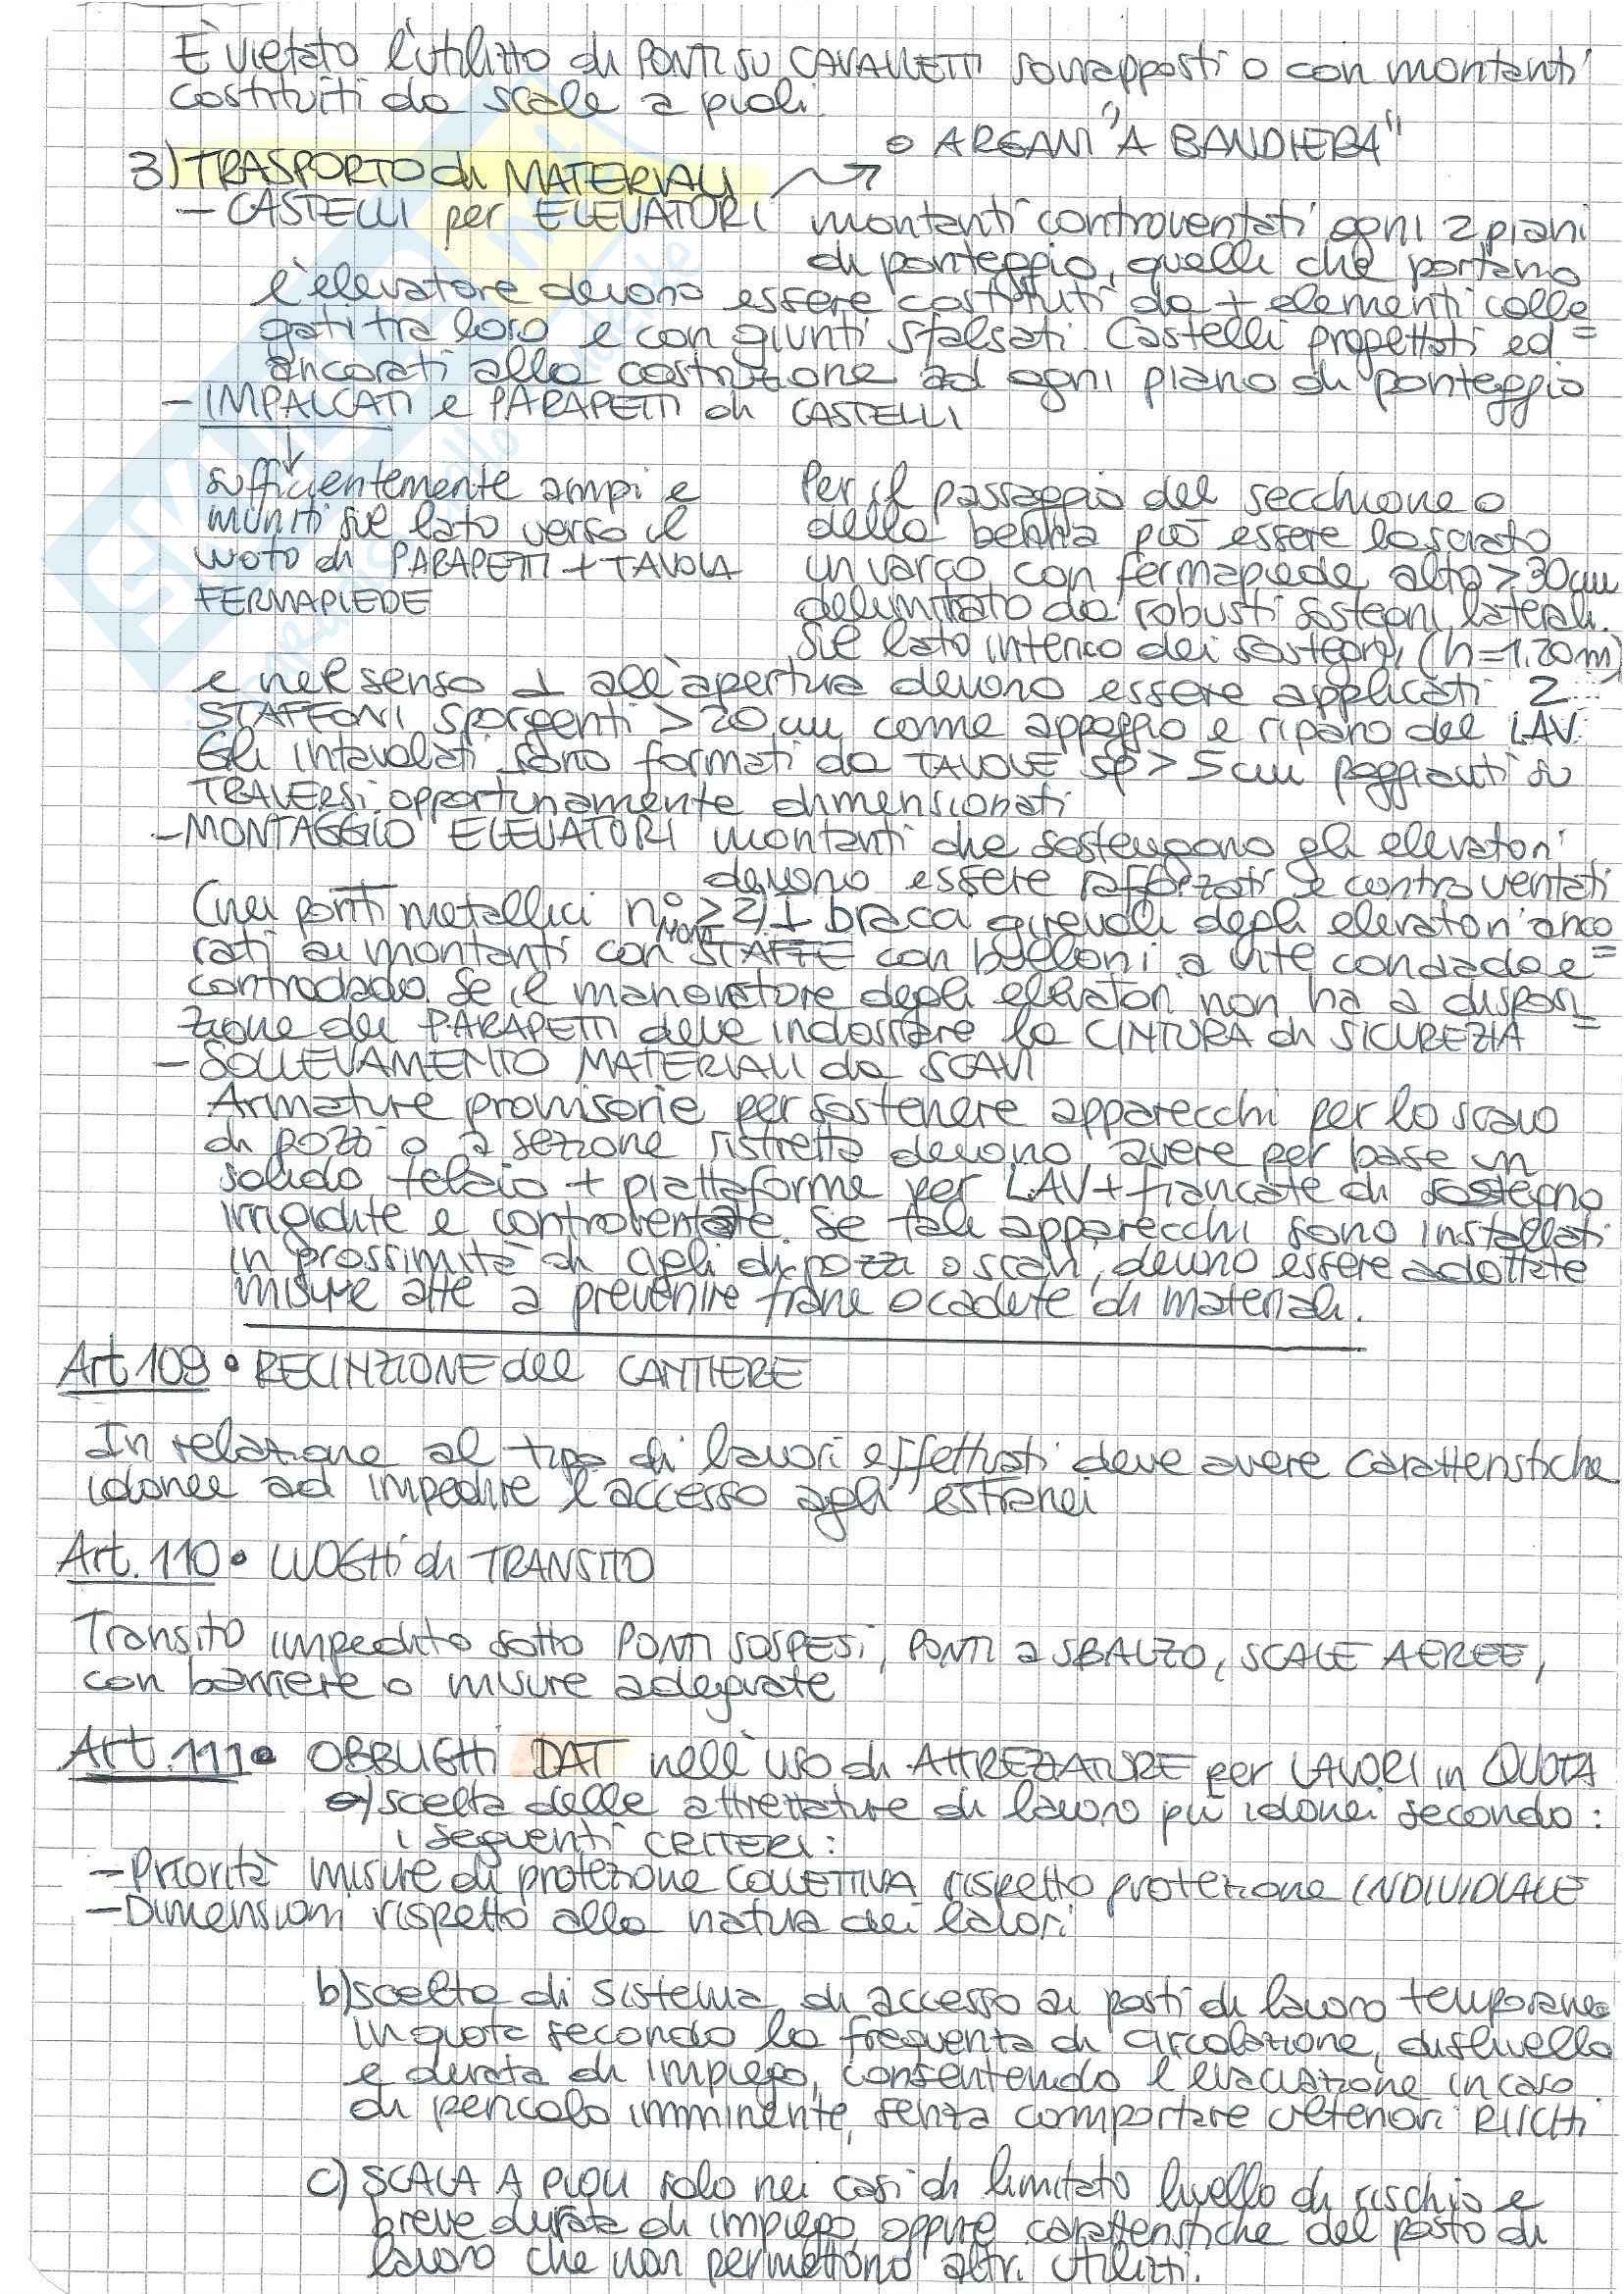 È vietato l'utilizzo di PONTI SU CAVALLETTI sovrapposti o con montanti
costituiti da scale a pioli.
o ARGANI "A BANDIERA"
3) TRASPORTO di MATERIALI
- CASTELLI per ELEVATORI montanti controventati ogni 2 piani
di ponteggio, quelli che portano
l'elevatore devono essere costituiti da + elementi colle
gati tra loro e con giunti sfalsati. Castelli progettati ed
ancorati alla costruzione ad ogni piano di ponteggio
- IMPALCATI e PARAPETTI di CASTELLI
sufficientemente ampi e
muniti sul lato verso il
vuoto di PARAPETTI + TAVOLA
FERMAPIEDE
Per il passaggio del secchione o
della benna può essere lasciato
un varco, con fermapiede alto > 30 cm
delimitato da robusti sostegni laterali.
Sul lato interno dei sostegni (h=1,20 m)
e nel senso ⊥ all'apertura devono essere applicati 2
STAFFONI sporgenti > 20 cm come appoggio e riparo del LAV.
Gli intavolati sono formati da TAVOLE sp > 5 cm poggianti su
TRAVERSI opportunamente dimensionati
- MONTAGGIO ELEVATORI montanti che sostengono gli elevatori
devono essere rafforzati e controventati
(nei ponti metallici n° MONT ≥ 2) I bracci girevoli degli elevatori anco
rati ai montanti con STAFFE con bulloni a vite con dado e
controdado. Se il manovratore degli elevatori non ha a disposi
zione dei PARAPETTI deve indossare la CINTURA di SICUREZZA
- SOLLEVAMENTO MATERIALI da SCAVI
Armature provvisorie per sostenere apparecchi per lo scavo
di pozzi o a sezione ristretta devono avere per base un
solido telaio + piattaforme per LAV + fiancate di sostegno
irrigidite e controventate. Se tali apparecchi sono installati
in prossimità di cigli di pozzi o scavi, devono essere adottate
misure atte a prevenire frane o cadute di materiali.
Art 109 • RECINZIONE del CANTIERE
In relazione al tipo di lavori effettuati deve avere caratteristiche
idonee ad impedire l'accesso agli estranei
Art. 110 • LUOGHI di TRANSITO
Transito impedito sotto PONTI SOSPESI, PONTI a SBALZO, SCALE AEREE,
con barriere o misure adeguate
Art. 111 • OBBLIGHI DAT nell'uso di ATTREZZATURE per LAVORI in QUOTA
a) scelta delle attrezzature di lavoro più idonei secondo:
i seguenti CRITERI:
- Priorità misure di protezione COLLETTIVA rispetto protezione INDIVIDUALE
- Dimensioni rispetto alla natura dei lavori
b) scelta di sistema di accesso ai posti di lavoro temporanei
in quota secondo la frequenza di circolazione, dislivello
e durata di impiego, consentendo l'evacuazione in caso
di pericolo imminente, senza comportare ulteriori RISCHI
c) SCALA A PIOLI solo nei casi di limitato livello di rischio e
breve durata di impiego oppure caratteristiche del posto di
lavoro che non permettono altri utilizzi.